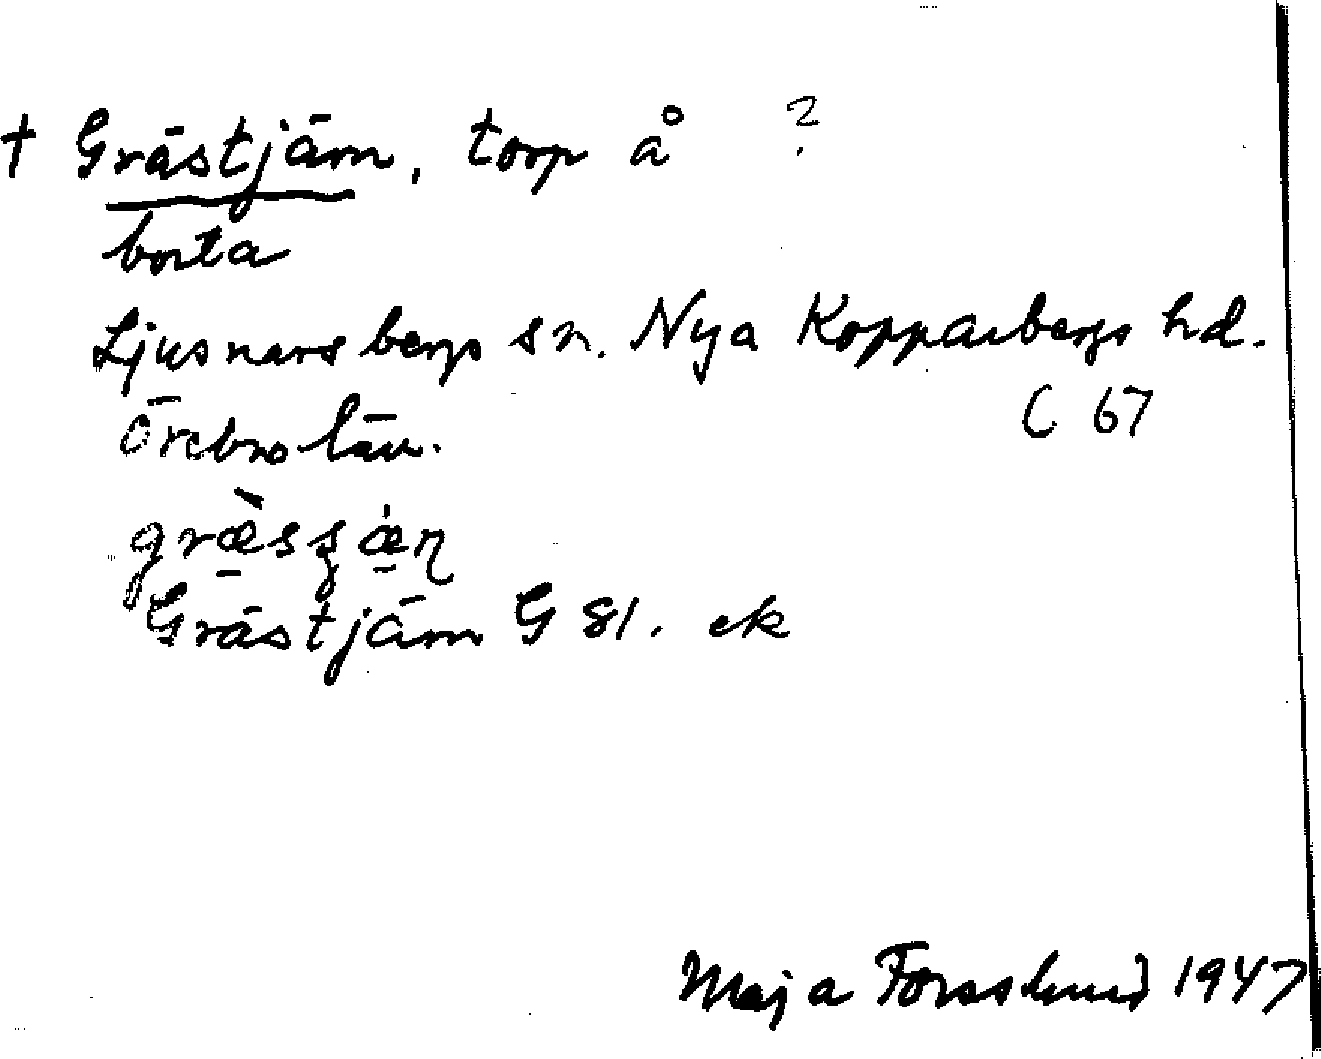 † Grästjärn, torp å ?
borta
Ljusnarsbergs sn. Nya Kopparbergs hd.
Örebro län. C 67
Grästjärn G 81. ek
Maja Forsslund 1947